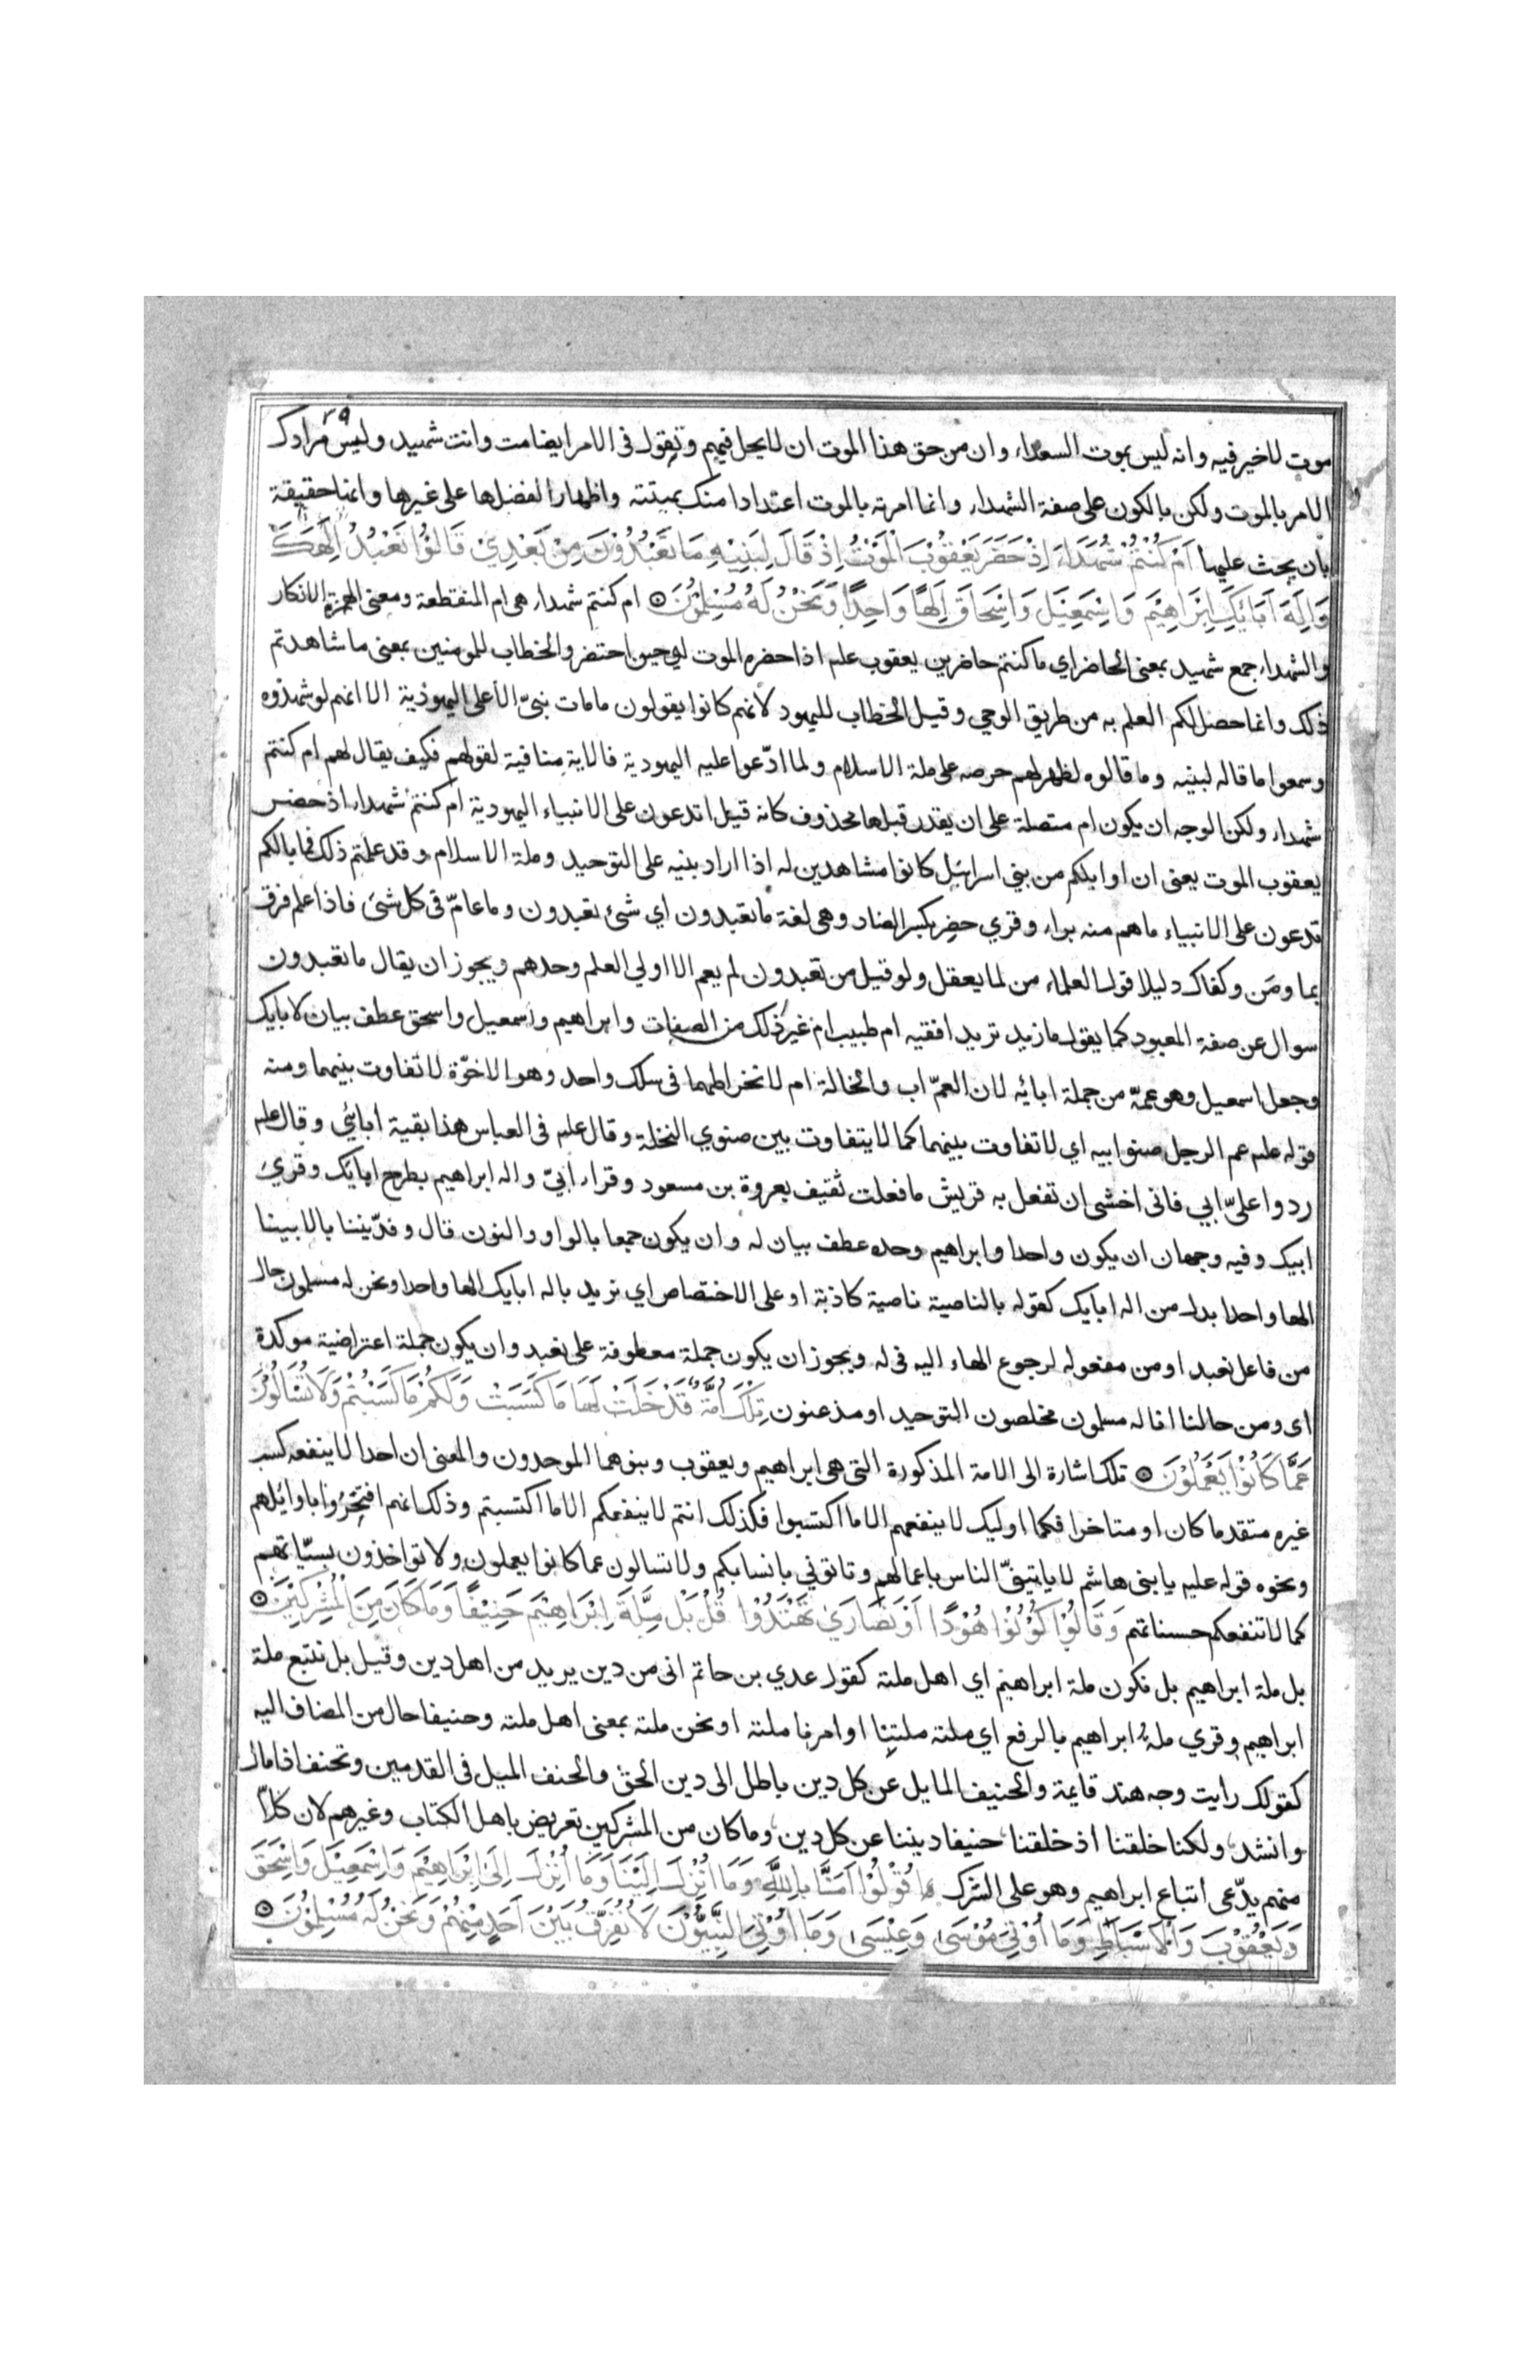 ٢٩
موت لا خير فيه وانه ليس بموت السعداء وان من حق هذا الموت ان لا يحل فيهم وتقول في الامر ايضا مت وانت شهيد وليس مرادك
الامر بالموت ولكن بالكون على صفة الشهداء وانما امرته بالموت اعتدادا منك بميتته واظهارا لفضلها على غيرها وانها حقيقة
بان يحث عليها اَمْ كُنْتُمْ شُهَدَاءَ اِذْ حَضَرَ يَعْقُوْبَ الْمَوْتُ اِذْ قَالَ لِبَنِيْهِ مَا تَعْبُدُوْنَ مِنْ بَعْدِيْ قَالُوْا نَعْبُدُ اِلَهَكَ
وَاِلَهَ اَبَائِكَ اِبْرَاهِيْمَ وَاِسْمَعِيْلَ وَاِسْحَاقَ اِلَهًا وَاحِدًا وَنَحْنُ لَهُ مُسْلِمُوْنَ ۝ ام كنتم شهداء هى ام المنقطعة ومعنى الهمزة الانكار
والشهداء جمع شهيد بمعنى الحاضر اي ما كنتم حاضرين يعقوب علم اذا حضره الموت اي حين احتضر والخطاب للمومنين بمعنى ما شاهدتم
ذلك وانما حصل لكم العلم به من طريق الوحي وقيل الخطاب لليهود لانهم كانوا يقولون ما مات نبيّ الا على اليهوذية الا انهم لو شهدوه
وسمعوا ما قاله لبنيه وما قالوه لظهر لهم حرصه على ملة الاسلام ولما ادّعوا عليه اليهودية فالاية منافية لقولهم فكيف يقال لهم ام كنتم
شهداء ولكن الوجه ان يكون ام متصلة على ان يقدر قبلها محذوف كانه قيل اتدعون على الانبياء اليهودية ام كنتم شهداء اذ حضر
يعقوب الموت يعنى ان اوايلكم من بني اسرائيل كانوا مشاهدين له اذا اراد بنيه على التوحيد وملة الاسلام وقد علمتم ذلك فما بالكم
تدعون على الانبياء ما هم منه براء وقري حضِر بكسر الضاد وهى لغة ما تعبدون اي شئ تعبدون وما عامّ فى كل شئ فاذا علم فرق
بما ومَن وكفاك دليلا قول العلماء من لما يعقل ولو قيل من تعبدون لم يعم الا اولي العلم وحدهم ويجوز ان يقال ما تعبدون
سوال عن صفة المعبود كما يقول ما زيد تريد افقيه ام طبيب ام غير ذلك من الصفات وابراهيم واسمعيل واسحق عطف بيان لابايك
وجعل اسمعيل وهو عمّه من جملة ابائه لان العمّ اب والخالة ام لانخراطهما فى سلك واحد وهو الاخوّة لا تفاوت بينهما ومنه
قوله علم عم الرجل صنو ابيه اي لا تفاوت بينهما كما لا يتفاوت بين صنوي النخلة وقال علم فى العباس هذا بقية ابائي وقال علم
ردوا عليّ ابي فانى اخشى ان تفعل به قريش ما فعلت ثقيف بعروة بن مسعود وقراء ابيّ واله ابراهيم بطرح ابايك وقري
ابيك وفيه وجهان ان يكون واحدا وابراهيم وحده عطف بيان له وان يكون جمعا بالواو والنون قال وفدّيننا بالابينا
الها واحدا بدل من اله ابايك كقوله بالناصية ناصية كاذبة او على الاختصاص اي نريد باله ابايك الها واحدا ونحن له مسلمون حال
من فاعل نعبد او من مفعوله لرجوع الهاء اليه فى له ويجوز ان يكون جملة معطوفة على نعبد وان يكون جملة اعتراضية موكدة
اى ومن حالنا انا له مسلمون مخلصون التوحيد او مذعنون تِلْكَ اُمَّةٌ قَدْ خَلَتْ لَهَا مَا كَسَبَتْ وَلَكُمْ مَا كَسَبْتُمْ وَلَا تُسْأَلُوْنَ
عَمَّا كَانُوْا يَعْمَلُوْنَ ۝ تلك اشارة الى الامة المذكورة التى هى ابراهيم ويعقوب وبنوهما الموحدون والمعنى ان احدا لا ينفعه كسب
غيره متقدما كان او متاخرا فكما اوليك لا ينفعهم الا ما اكتسبوا فكذلك انتم لا ينفعكم الا ما اكتسبتم وذلك انهم افتخروا باوائلهم
ونحوه قوله عليه يا بنى هاشم لا ياتينيّ الناس باعمالهم وتاتوني بانسابكم ولا تسالون عما كانوا يعملون ولا تواخذون بسيّاتهم
كما لا تنفعكم حسناتهم وَقَالُوْا كُوْنُوْا هُوْدًا اَوْ نَصَارَيٰ تَهْتَدُوْا قُلْ بَلْ مِلَّةَ اِبْرَاهِيْمَ حَنِيْفًا وَمَا كَانَ مِنَ الْمُشْرِكِيْنَ ۝
بل ملة ابراهيم بل نكون ملة ابراهيم اي اهل ملته كقول عدي بن حاتم انى من دين يريد من اهل دين وقيل بل نتبع ملة
ابراهيم وقري ملةُ ابراهيم بالرفع اي ملته ملتنا او امرنا ملته او نحن ملته بمعنى اهل ملته وحنيفا حال من المضاف اليه
كقولك رايت وجه هند قايمة والحنيف المايل عن كل دين باطل الى دين الحق والحنف الميل فى القدمين وتحنف اذا مال
وانشد، ولكنا خلقنا اذ خلقنا، حنيفا ديننا عن كل دين، وما كان من المشركين تعريض باهل الكتاب وغيرهم لان كلاّ
منهم يدّعى اتباع ابراهيم وهو على الشرك قُوْلُوْا اَمَنَّا بِاللَّهِ وَمَا اُنْزِلَ اِلَيْنَا وَمَا اُنْزِلَ اِلَىٰ اِبْرَاهِيْمَ وَاِسْمَعِيْلَ وَاِسْحَقَ
وَيَعْقُوْبَ وَالْاَسْبَاطِ وَمَا اُوْتِيَ مُوْسَى وَعِيْسَى وَمَا اُوْتِيَ النَّبِيُّوْنَ لَا نُفَرِّقُ بَيْنَ اَحَدٍ مِنْهُمْ وَنَحْنُ لَهُ مُسْلِمُوْنَ ۝